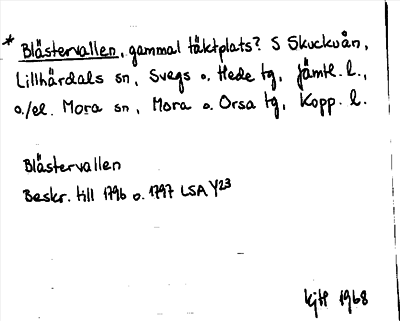 * Blästervallen, gammal täktplats? S Skuckuån,
Lillhärdals sn, Svegs o. Hede tg, Jämtl. l.,
o./el. Mora sn, Mora o. Orsa tg, Kopp. l.
Blästervallen
Beskr. till 1796 o. 1797 LSA Y23
kjH 1968